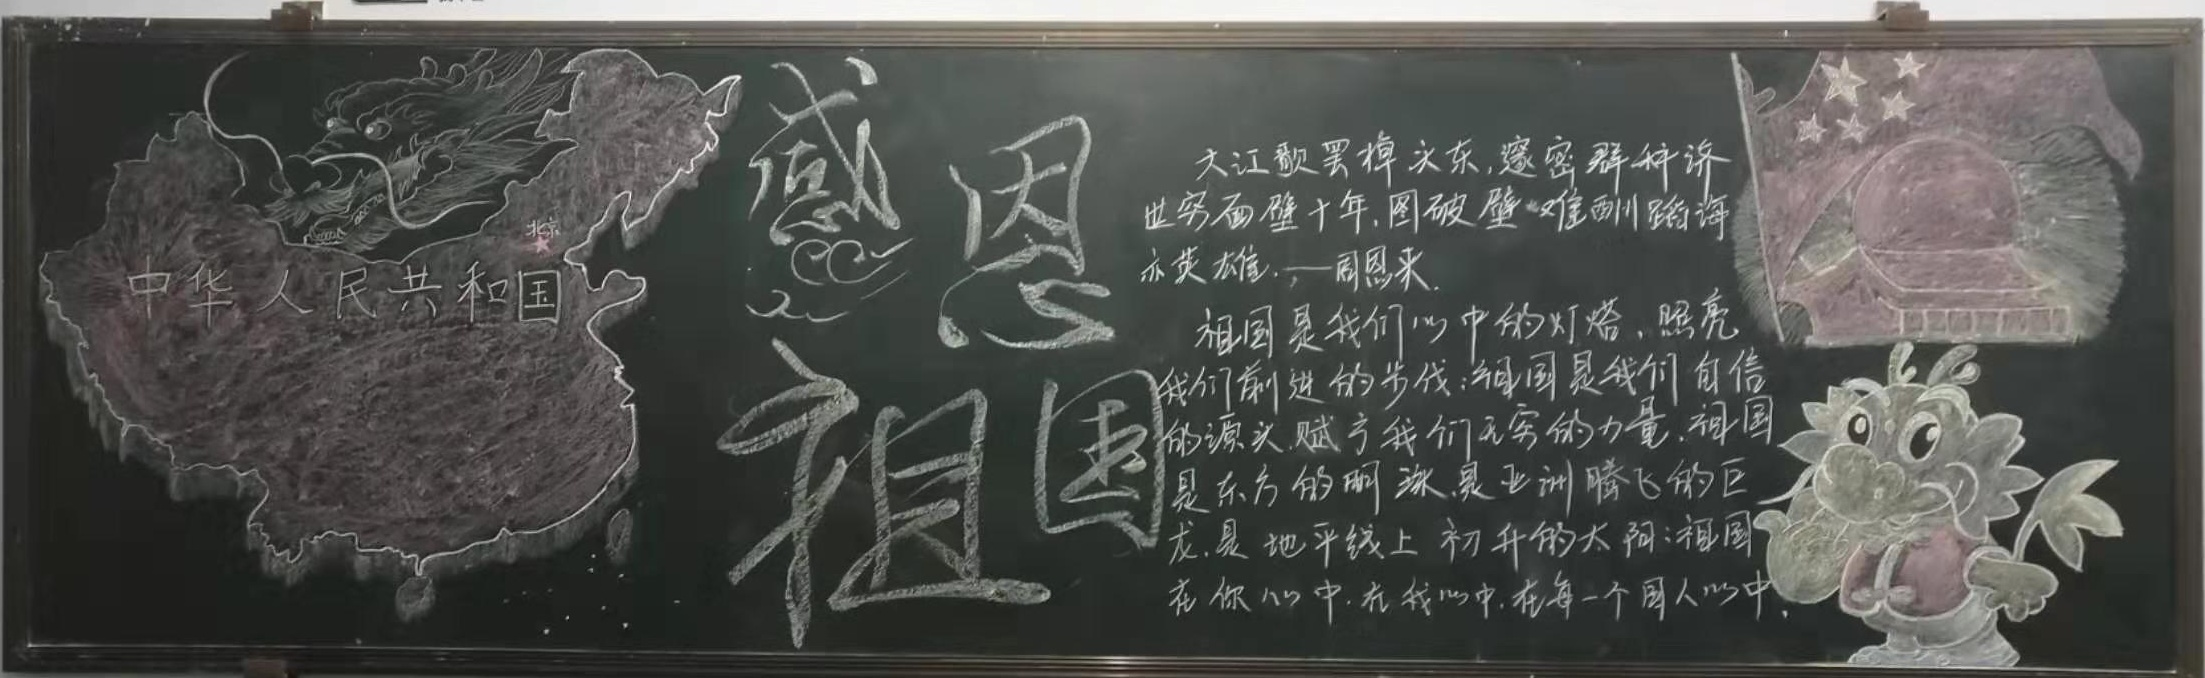 北京
中华人民共和国
感恩
祖国
大江歌罢掉头东,邃密群科济
世穷面壁十年,图破壁难酬蹈海
亦英雄.,——周恩来.
祖国是我们心中的灯塔,照亮
我们前进的步伐;祖国是我们自信
的源头,赋予我们无穷的力量,祖国
是东方的明珠,是亚洲腾飞的巨
龙,是地平线上初升的太阳;祖国
在你心中,在我心中,在每一个国人心中.